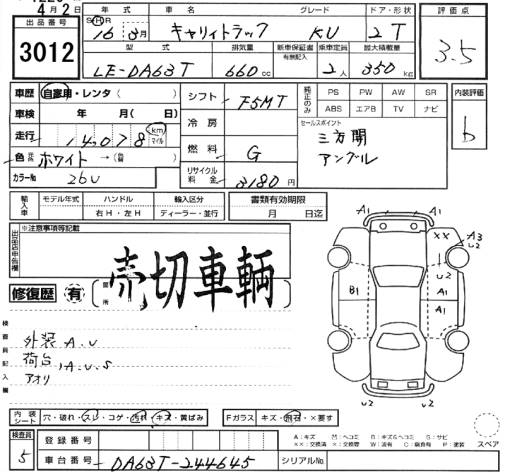 4月2日
出品番号 3012
年式 SH 16年 3月
車名 キャリイトラック
グレード KU
ドア・形状 2T
評価点 3.5
型式 LE-DA63T
排気量 660cc
新車保証書 有無記入
乗車定員 2人
最大積載量 350kg
車歴 自家用・レンタ( )
車検 年 月(日)
走行 14,078 km マイル
色 ホワイト →(色替)
カラーNo 26U
シフト F5MT
冷房
燃料 G
リサイクル料金 8180円
純正のみ PS PW AW SR
ABS エアB TV ナビ
セールスポイント
三方開
アングル
内装評価 b
輸入車 モデル年式
ハンドル 右H・左H
輸入区分 ディーラー・並行
書類有効期限 月 日迄
出品店申告欄
※注意事項等記載
売切車輌
修復歴 有
箇所
検査員記入欄
外装 A.U
荷台,A.U.S
アオリ
A1 A1
×× A3
U2
U2
B1 A1
A1
U2 U2
内装シート 穴・破れ・スレ・コゲ・汚れ・キズ・黄ばみ
Fガラス キズ・飛石・×要す
検査員 5
登録番号
車台番号 DA63T-244645
シリアルNo.
A:キズ
スペア